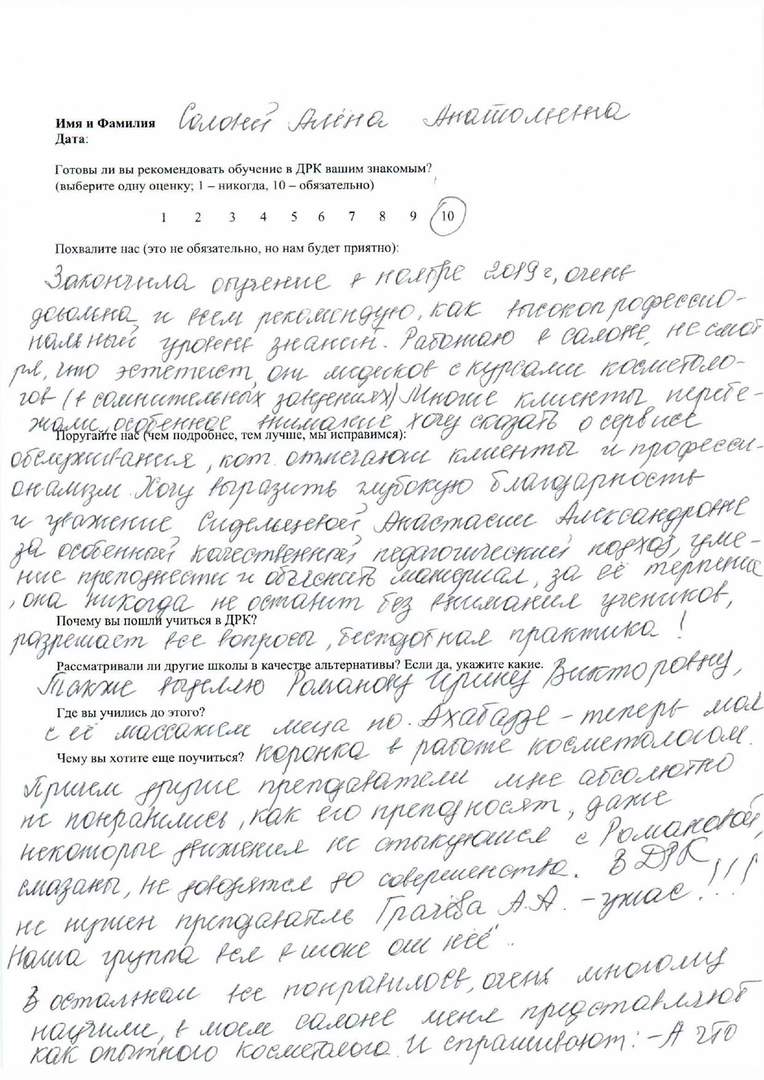 Имя и Фамилия Солоней Алёна Анатольевна
Дата:
Готовы ли вы рекомендовать обучение в ДРК вашим знакомым?
(выберите одну оценку; 1 – никогда, 10 – обязательно)
1 2 3 4 5 6 7 8 9 10
Похвалите нас (это не обязательно, но нам будет приятно):
Закончила обучение в ноябре 2019 г, очень
довольна и всем рекомендую, как высокопрофессио-
нальный уровень знаний. Работаю в салоне, несмот
ря, что эстетист, от медиков с курсами косметоло-
гов (в сомнительных заведениях) Многие клиенты перебе-
жали, особенное внимание хочу сказать о сервисе
Поругайте нас (чем подробнее, тем лучше, мы исправимся):
обслуживания, кот. отмечают клиенты и професси-
онализм. Хочу выразить глубокую благодарность
и уважение Сидельцевой Анастасии Александровне
за особенный качественный педагогический подход, уме-
ние преподнести и объяснить материал, за её терпение
, она никогда не оставит без внимания учеников,
Почему вы пошли учиться в ДРК?
разрешает все вопросы, бесподобная практика!
Рассматривали ли другие школы в качестве альтернативы? Если да, укажите какие.
Также выделяю Романову Ирину Викторовну,
Где вы учились до этого?
с её массажем лица по Ахабадзе – теперь моя
Чему вы хотите еще поучиться? коронка в работе косметологом.
Причем другие преподаватели мне абсолютно
не понравились, как его преподносят, даже
некоторые движения не стыкующиеся с Романовой,
смазаны, не доводятся до совершенства. В ДРК
не нужен преподаватель Грачёва А.А. – ужас!!!
Наша группа вся в шоке от неё.
В остальном все понравилось, очень многому
научили, в моем салоне меня представляют
как опытного косметолога. И спрашивают: – А что